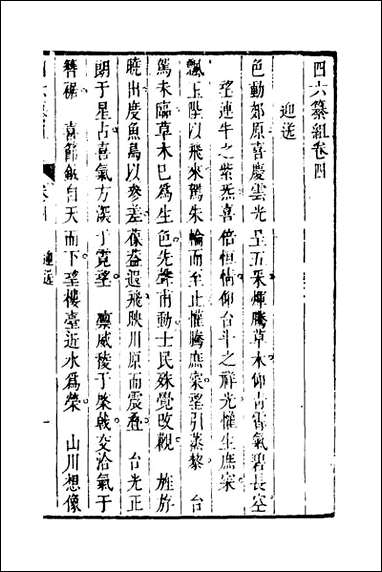 四六纂組卷四
迎送
色動郊原喜慶雲光呈五采煇騰草木仰青霄氣碧長空
望連牛之紫炁喜倍恒情仰台斗之祥光懽生庶寀
飄玉墜以飛來駕朱輪而至止懽騰庶寀望引蒸黎 台
駕未臨草木巳為生色先聲甫動士民殊覺改觀 旌旂
曉出慶魚鳥以參差葆葢遥飛映川原而震疊 台光正
朗于星占喜氣方深于霓望 凛威稜于棨戟交洽氣于
簪裾 喜節鉞自天而下望樓臺近水爲榮 山川想像
迎送
一